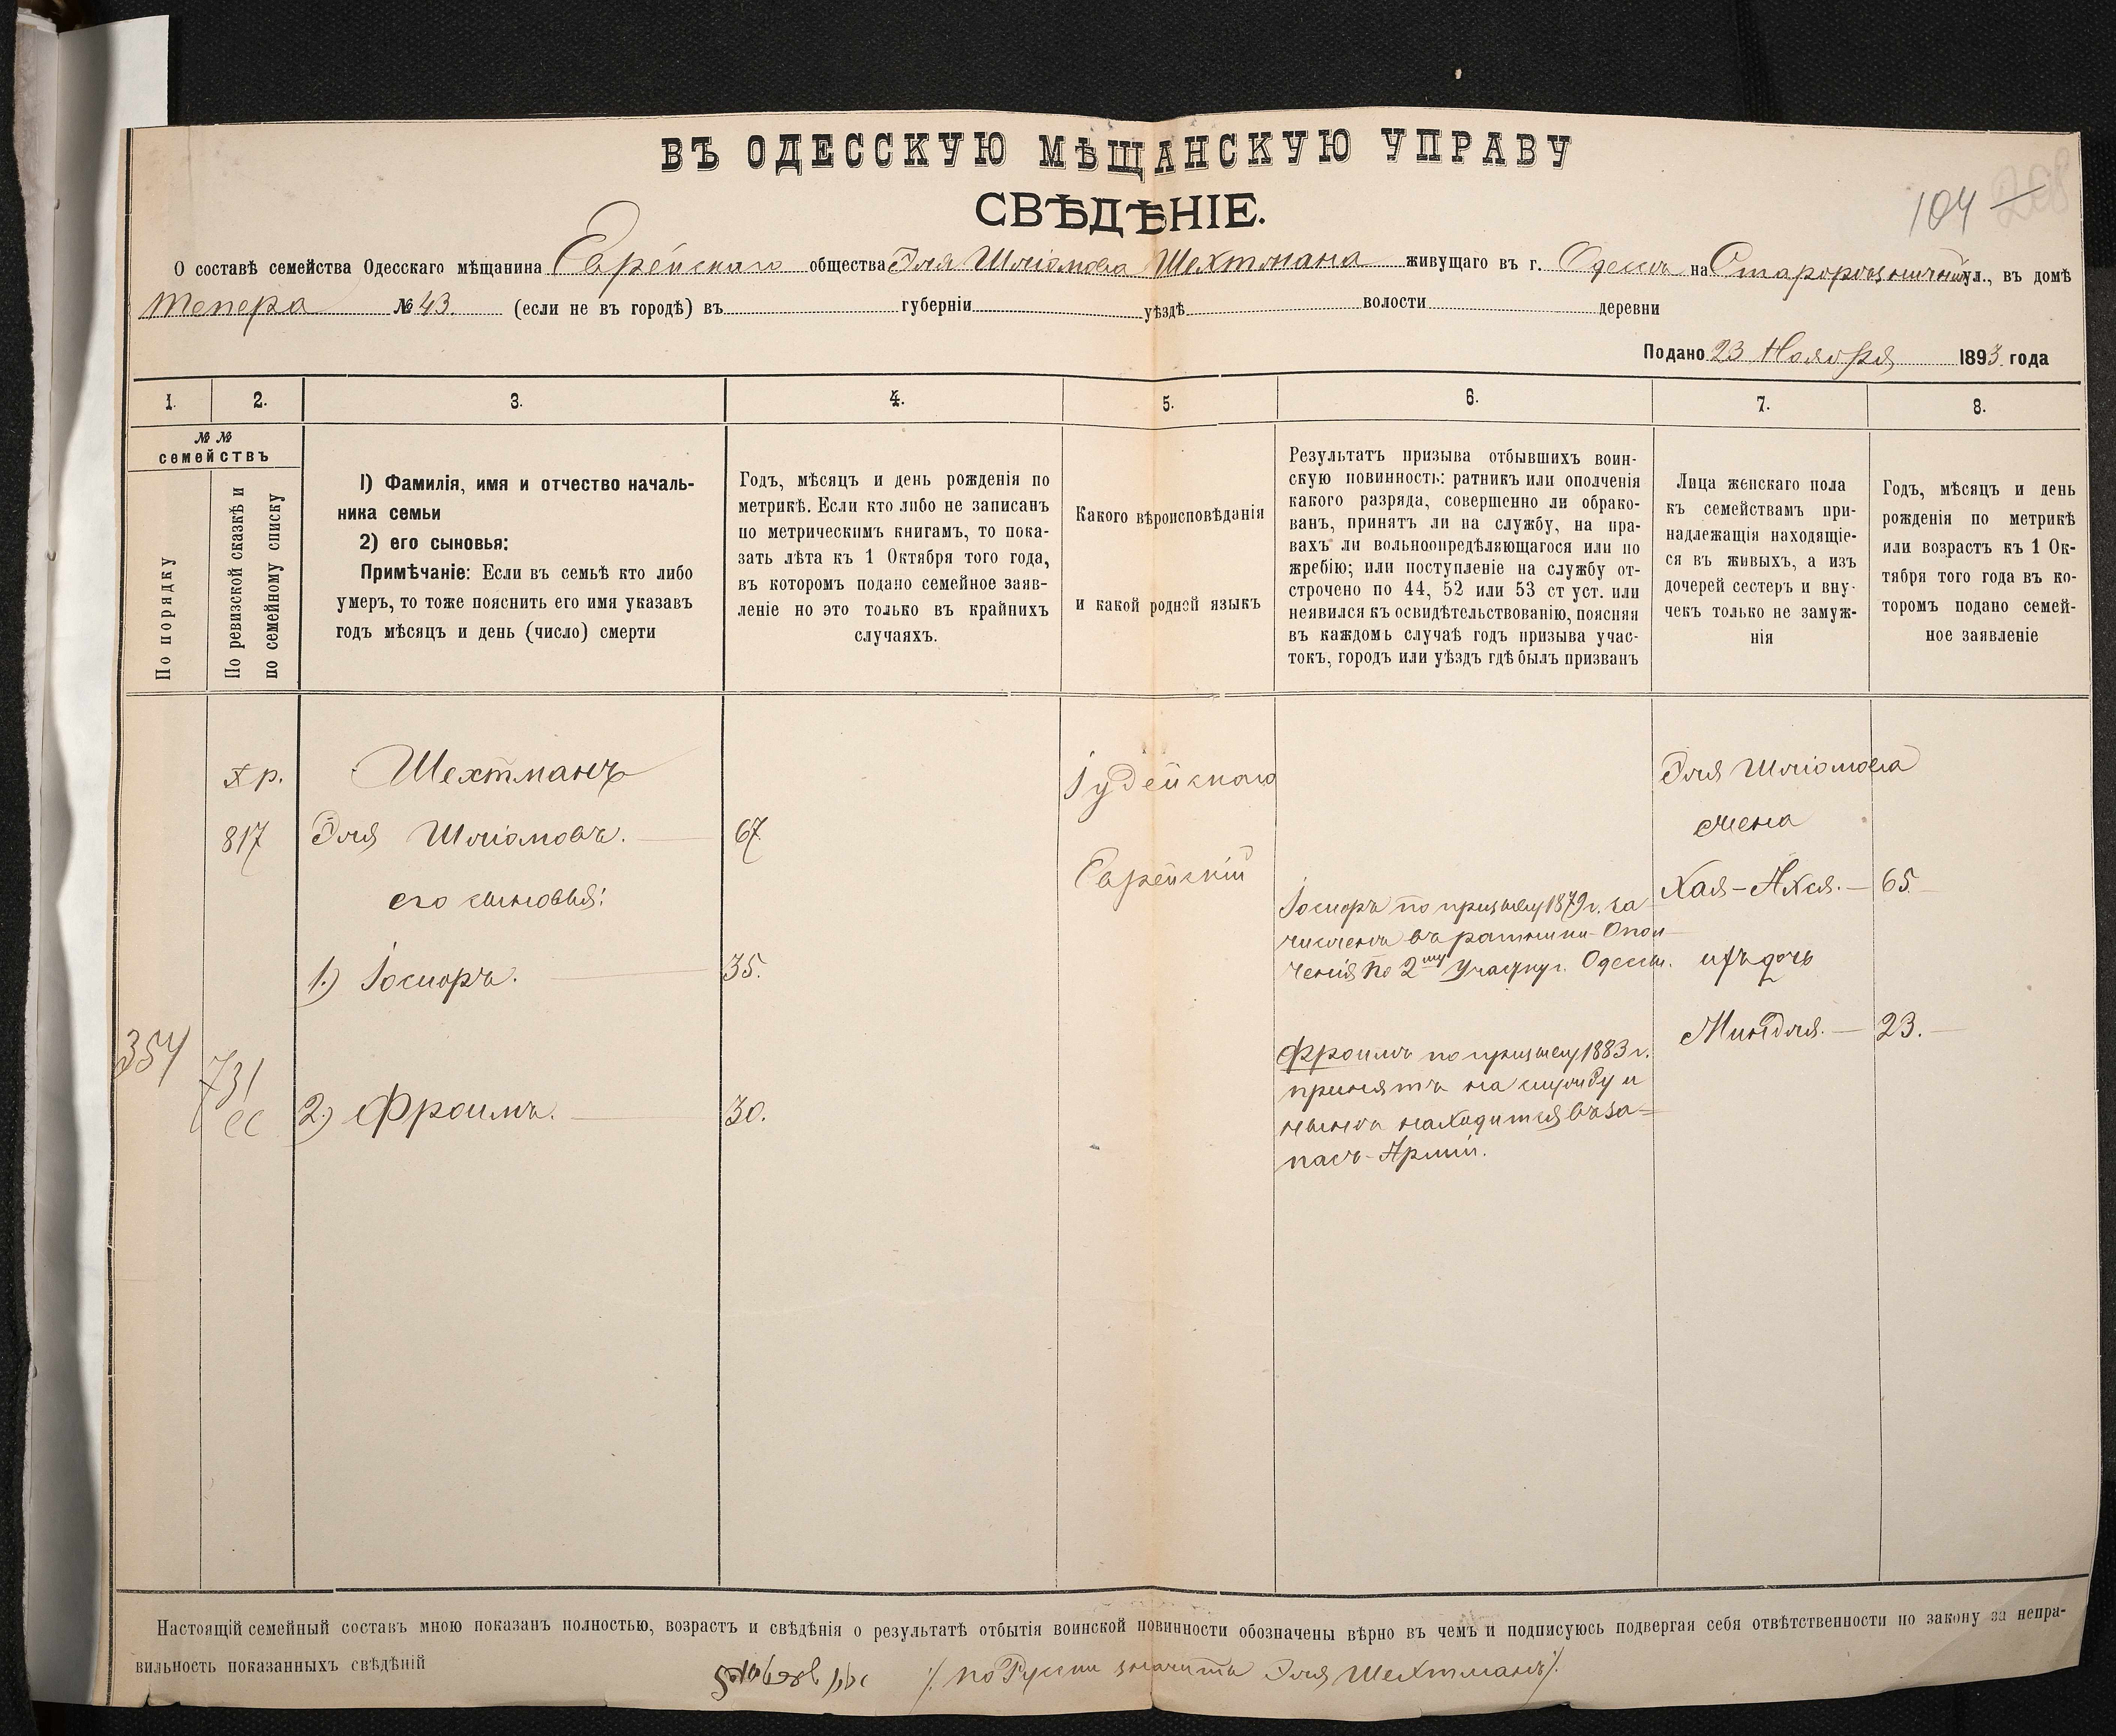 ВЪ ОДЕССКУЮ МѢЩАНСКУЮ УПРАВУ
СВѢДѢНІЕ.
104
208
О составѣ семейства Одесскаго мѣщанина Еврейскаго общества Эля Шліомова Шехтмана живущаго въ г. Одессѣ на ул., въ домѣ
Тепера № 43. (если не въ городѣ) въ губерніи уѣздѣ волости деревни
Подано 23 Ноября 1893 года
1. 2. 3. 4. 5. 6. 7. 8.
№ №
семействъ
По порядку
По ревизской сказкѣ и
по семейному списку
1) Фамилія, имя и отчество началь-
ника семьи
2) его сыновья:
Примѣчаніе: Если въ семьѣ кто либо
умеръ, то тоже пояснить его имя указавъ
годъ мѣсяцъ и день (число) смерти
Годъ, мѣсяцъ и день рожденія по
метрикѣ. Если кто либо не записанъ
по метрическимъ книгамъ, то пока-
зать лѣта къ 1 Октября того года,
въ которомъ подано семейное заяв-
леніе но это только въ крайнихъ
случаяхъ.
Какого вѣроисповѣданія
и какой родной языкъ
Результатъ призыва отбывшихъ воин-
скую повинность: ратникъ или ополченія
какого разряда, совершенно ли обрако-
ванъ, принятъ ли на службу, на пра-
вахъ ли вольноопредѣляющагося или по
жребію; или поступленіе на службу от-
строчено по 44, 52 или 53 ст уст. или
неявился къ освидѣтельствованію, поясняя
въ каждомъ случаѣ годъ призыва учас-
токъ, городъ или уѣздъ гдѣ былъ призванъ
Лица женскаго пола
къ семействамъ при-
надлежащія находящіе-
ся въ живыхъ, а изъ
дочерей сестеръ и вну-
чекъ только не замуж-
нія
Годъ, мѣсяцъ и день
рожденія по метрикѣ
или возрастъ къ 1 Ок-
тября того года въ ко-
торомъ подано семей-
ное заявленіе
354
817
731
сс
Шехтманъ
Эля Шліомовъ. 67
его сыновья:
1.) Іосифъ. 35.
2.) Фроимъ. 30.
Іудейскаго
Еврейскій
Іосифъ по призыву 1879 г. за
численъ въ ратники Опол
ченія по 2му Участку г. Одессы.
Фроимъ по призыву 1883 г.
принятъ на службу и
нынѣ находится въ за=
пасѣ Арміи.
Эля Шліомова
жена
Хая-Акся. 65
ихъ дочь
Миндля. 23.
Настоящій семейный составъ мною показанъ полностью, возрастъ и свѣдѣнія о результатѣ отбытія воинской повинности обозначены вѣрно въ чемъ и подписуюсь подвергая себя отвѣтственности по закону за непра-
вильность показанныхъ свѣдѣній
/. по Русски значитъ Эля Шехтманъ /.